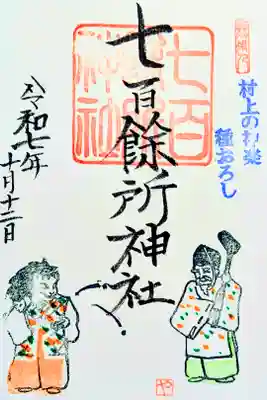 村上の神楽
種おろし
七百餘所神社
七百
神社
令和七年
十月十二日